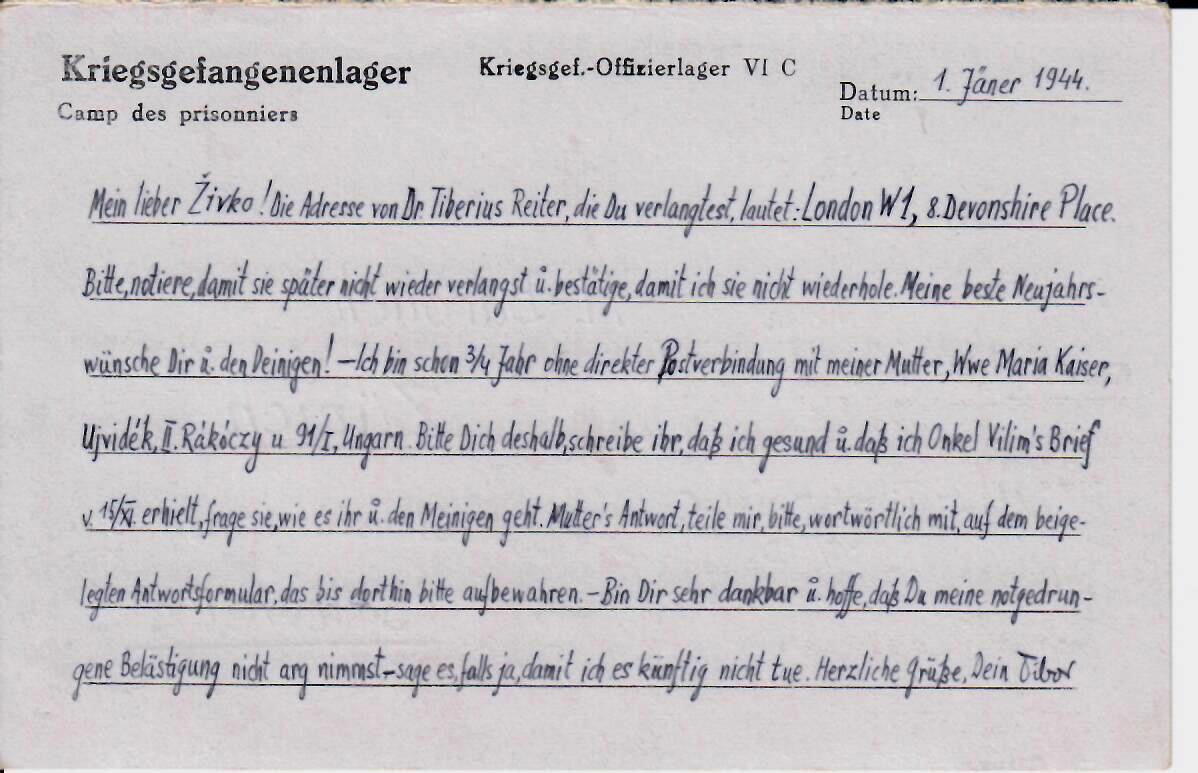 Kriegsgefangenenlager
Camp des prisonniers
Kriegsgef.-Offizierlager VI C
Datum: 1. Jäner 1944.
Date
Mein lieber Živko! Die Adresse von Dr Tiberius Reiter, die Du verlangtest, lautet: London W1, 8. Devonshire Place.
Bitte, notiere, damit sie später nicht wieder verlangst ů. bestätige, damit ich sie nicht wiederhole. Meine beste Neujahrs-
wünsche Dir ů. den Deinigen! – Ich bin schon 3/4 Jahr ohne direkter Postverbindung mit meiner Mutter, Wwe Maria Kaiser,
Ujvidék, II. Rákóczy u 91/I, Ungarn. Bitte Dich deshalb, schreibe ihr, daß ich gesund ů. daß ich Onkel Vilim's Brief
v. 15/XI. erhielt, frage sie, wie es ihr ů. den Meinigen geht. Mutter's Antwort, teile mir, bitte, wortwörtlich mit, auf dem beige-
legten Antwortsformular, das bis dorthin bitte aufbewahren. – Bin Dir sehr dankbar ů. hoffe, daß Du meine notgedrun-
gene Belästigung nicht arg nimmst – sage es, falls ja, damit ich es künftig nicht tue. Herzliche Grüße, Dein Tibor